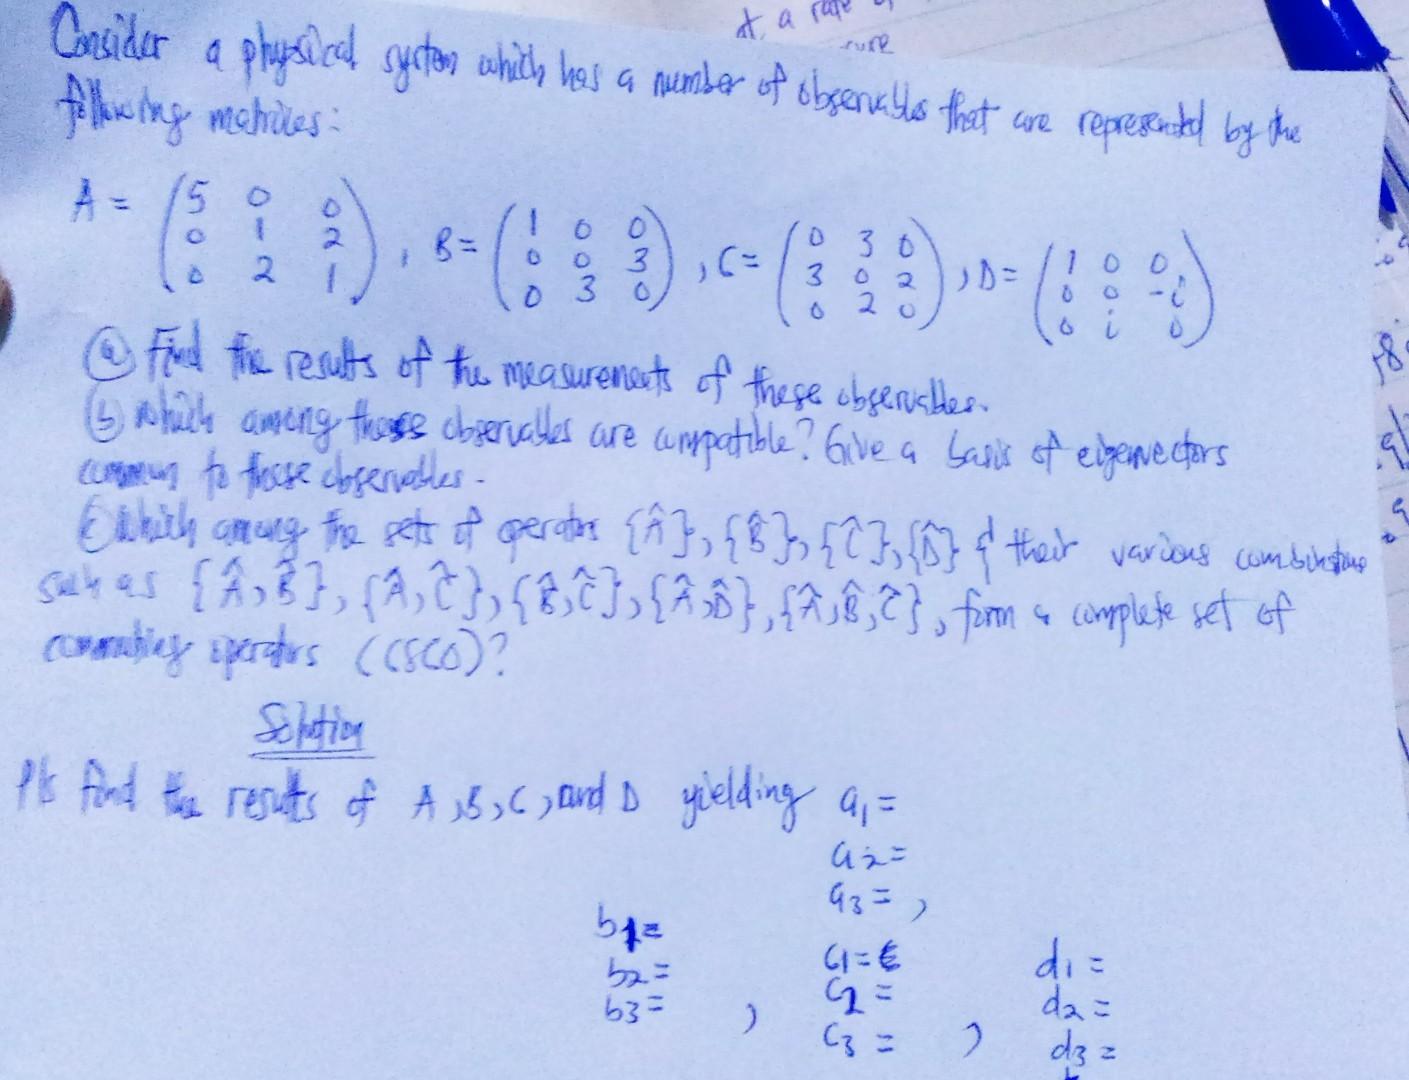 at a rate of
Consider a physical system which has a number of observables that are represented by the
following matrices:
A = (5 0 0
0 1 2
0 2 1), B = (1 0 0
0 0 3
0 3 0), C = (0 3 0
3 0 2
0 2 0), D = (1 0 0
0 0 -i
0 i 0)
(a) Find the results of the measurements of these observables.
(b) Which among these observables are compatible? Give a basis of eigenvectors
common to these observables.
(c) Which among the sets of operators {Â}, {B̂}, {Ĉ}, {D̂} & their various combinations
such as {Â, B̂}, {Â, Ĉ}, {B̂, Ĉ}, {Â, D̂}, {Â, B̂, Ĉ}, form a complete set of
commuting operators (CSCO)?
Solution
Pls find the results of A, B, C, and D yielding a1 =
a2 =
a3 = ,
b1 =
b2 =
b3 = ,
c1 =
c2 =
c3 = ,
d1 =
d2 =
d3 =